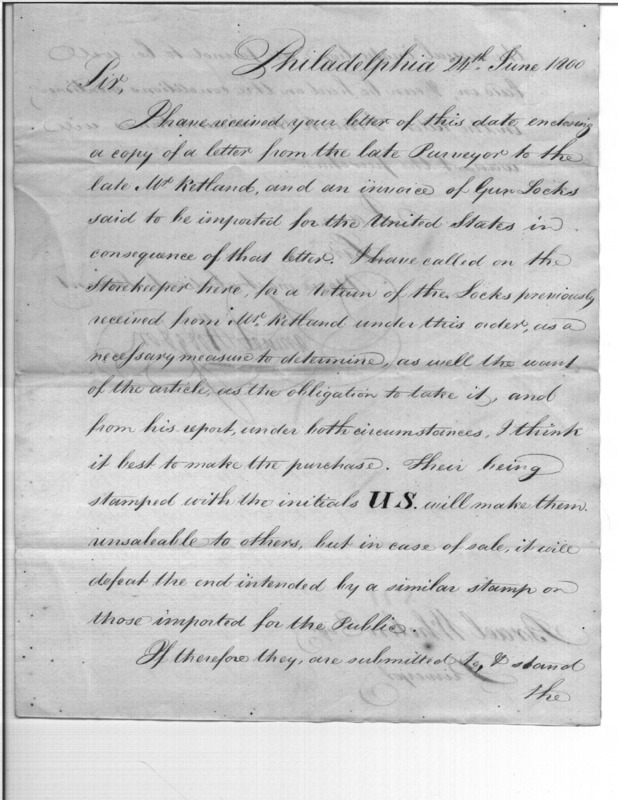 Philadelphia 24th June 1800
Sir,
I have received your letter of this date enclosing
a copy of a letter from the late Purveyor to the
late Mr Ketland, and an invoice of Gun Locks
said to be imported for the United States in
consequence of that letter. I have called on the
Storekeeper here, for a return of the Locks previously
received from Mr. Ketland under this order, as a
necessary measure to determine, as well the want
of the article, as the obligation to take it, and
from his report, under both circumstances, I think
it best to make the purchase. Their being
stamped with the initials US. will make them
unsaleable to others, but in case of sale, it will
defeat the end intended by a similar stamp on
those imported for the Public.
If therefore they, are submitted to, & stand
the